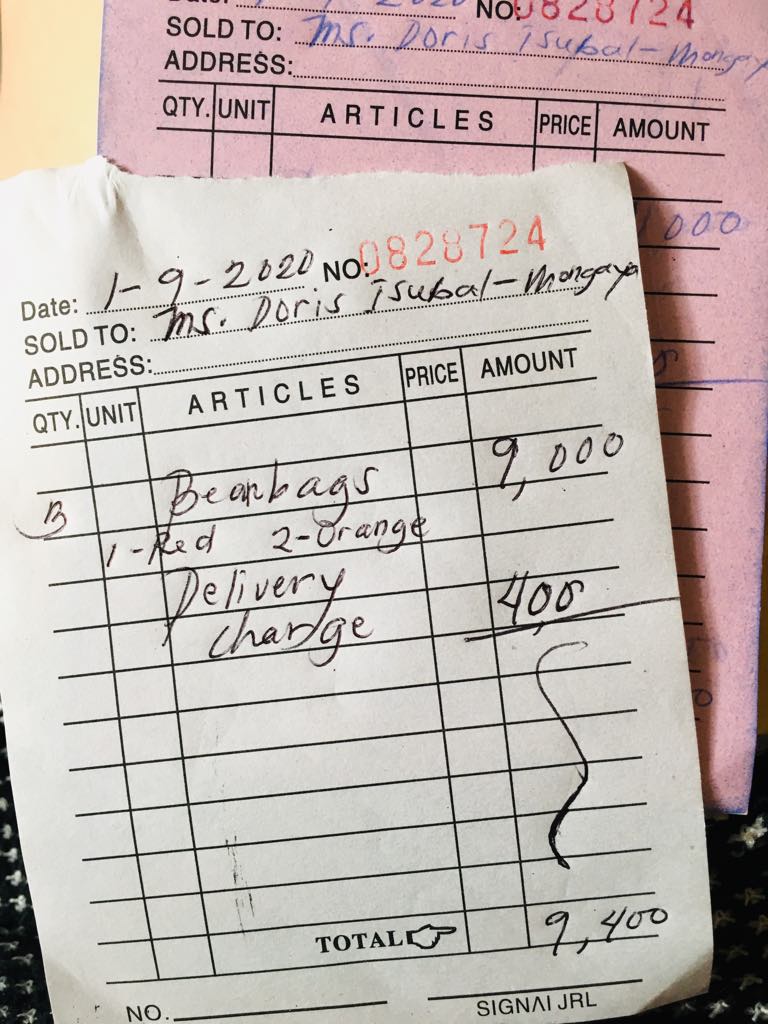 2020 NO: 0828724
SOLD TO: Ms. Doris Isubal-Mongaya
ADDRESS:
QTY. UNIT ARTICLES PRICE AMOUNT
000
Date: 1-9-2020 NO: 0828724
SOLD TO: Ms. Doris Isubal-Mongaya
ADDRESS:
QTY. UNIT ARTICLES PRICE AMOUNT
3 Beanbags 9,000
1-Red 2-Orange
Delivery 400
charge
TOTAL 9,400
NO.